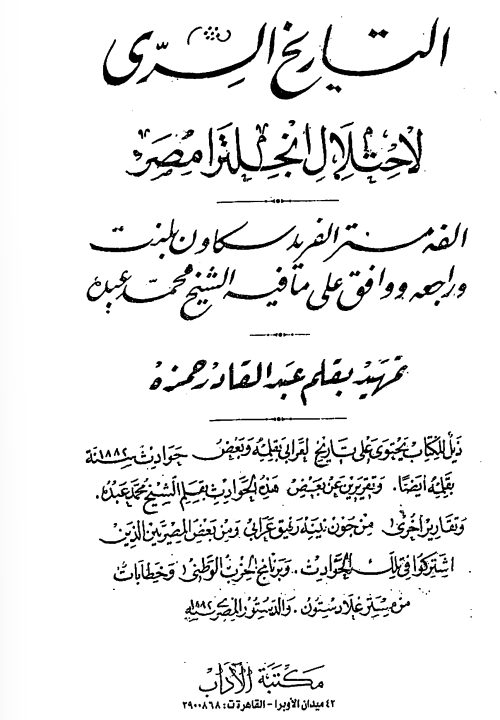 التاريخ السرى
لاحتلال انجلترا مصر
الفه مستر الفريد سكاون بلنت
وراجعه ووافق على ما فيه الشيخ محمد عبده
تمهيد بقلم عبد القادر حمزه
ذيل الكتاب يحتوى على تاريخ لعرابى بقلمه وبعض حوادث سنة ١٨٨٢
بقلمه ايضًا. وتقريرين عن بعض هذه الحوادث بقلم الشيخ محمد عبده.
وتقارير أخرى من جون نينيه رفيق عرابى ومن بعض المصريين الذين
اشتركوا فى تلك الحوادث. وبرنامج الحزب الوطنى وخطابات
من مستر غلادستون. والدستور المصرى سنة ١٨٨٢
مكتبة الآداب
٤٢ ميدان الأوبرا - القاهرة ت: ٣٩٠٠٨٦٨